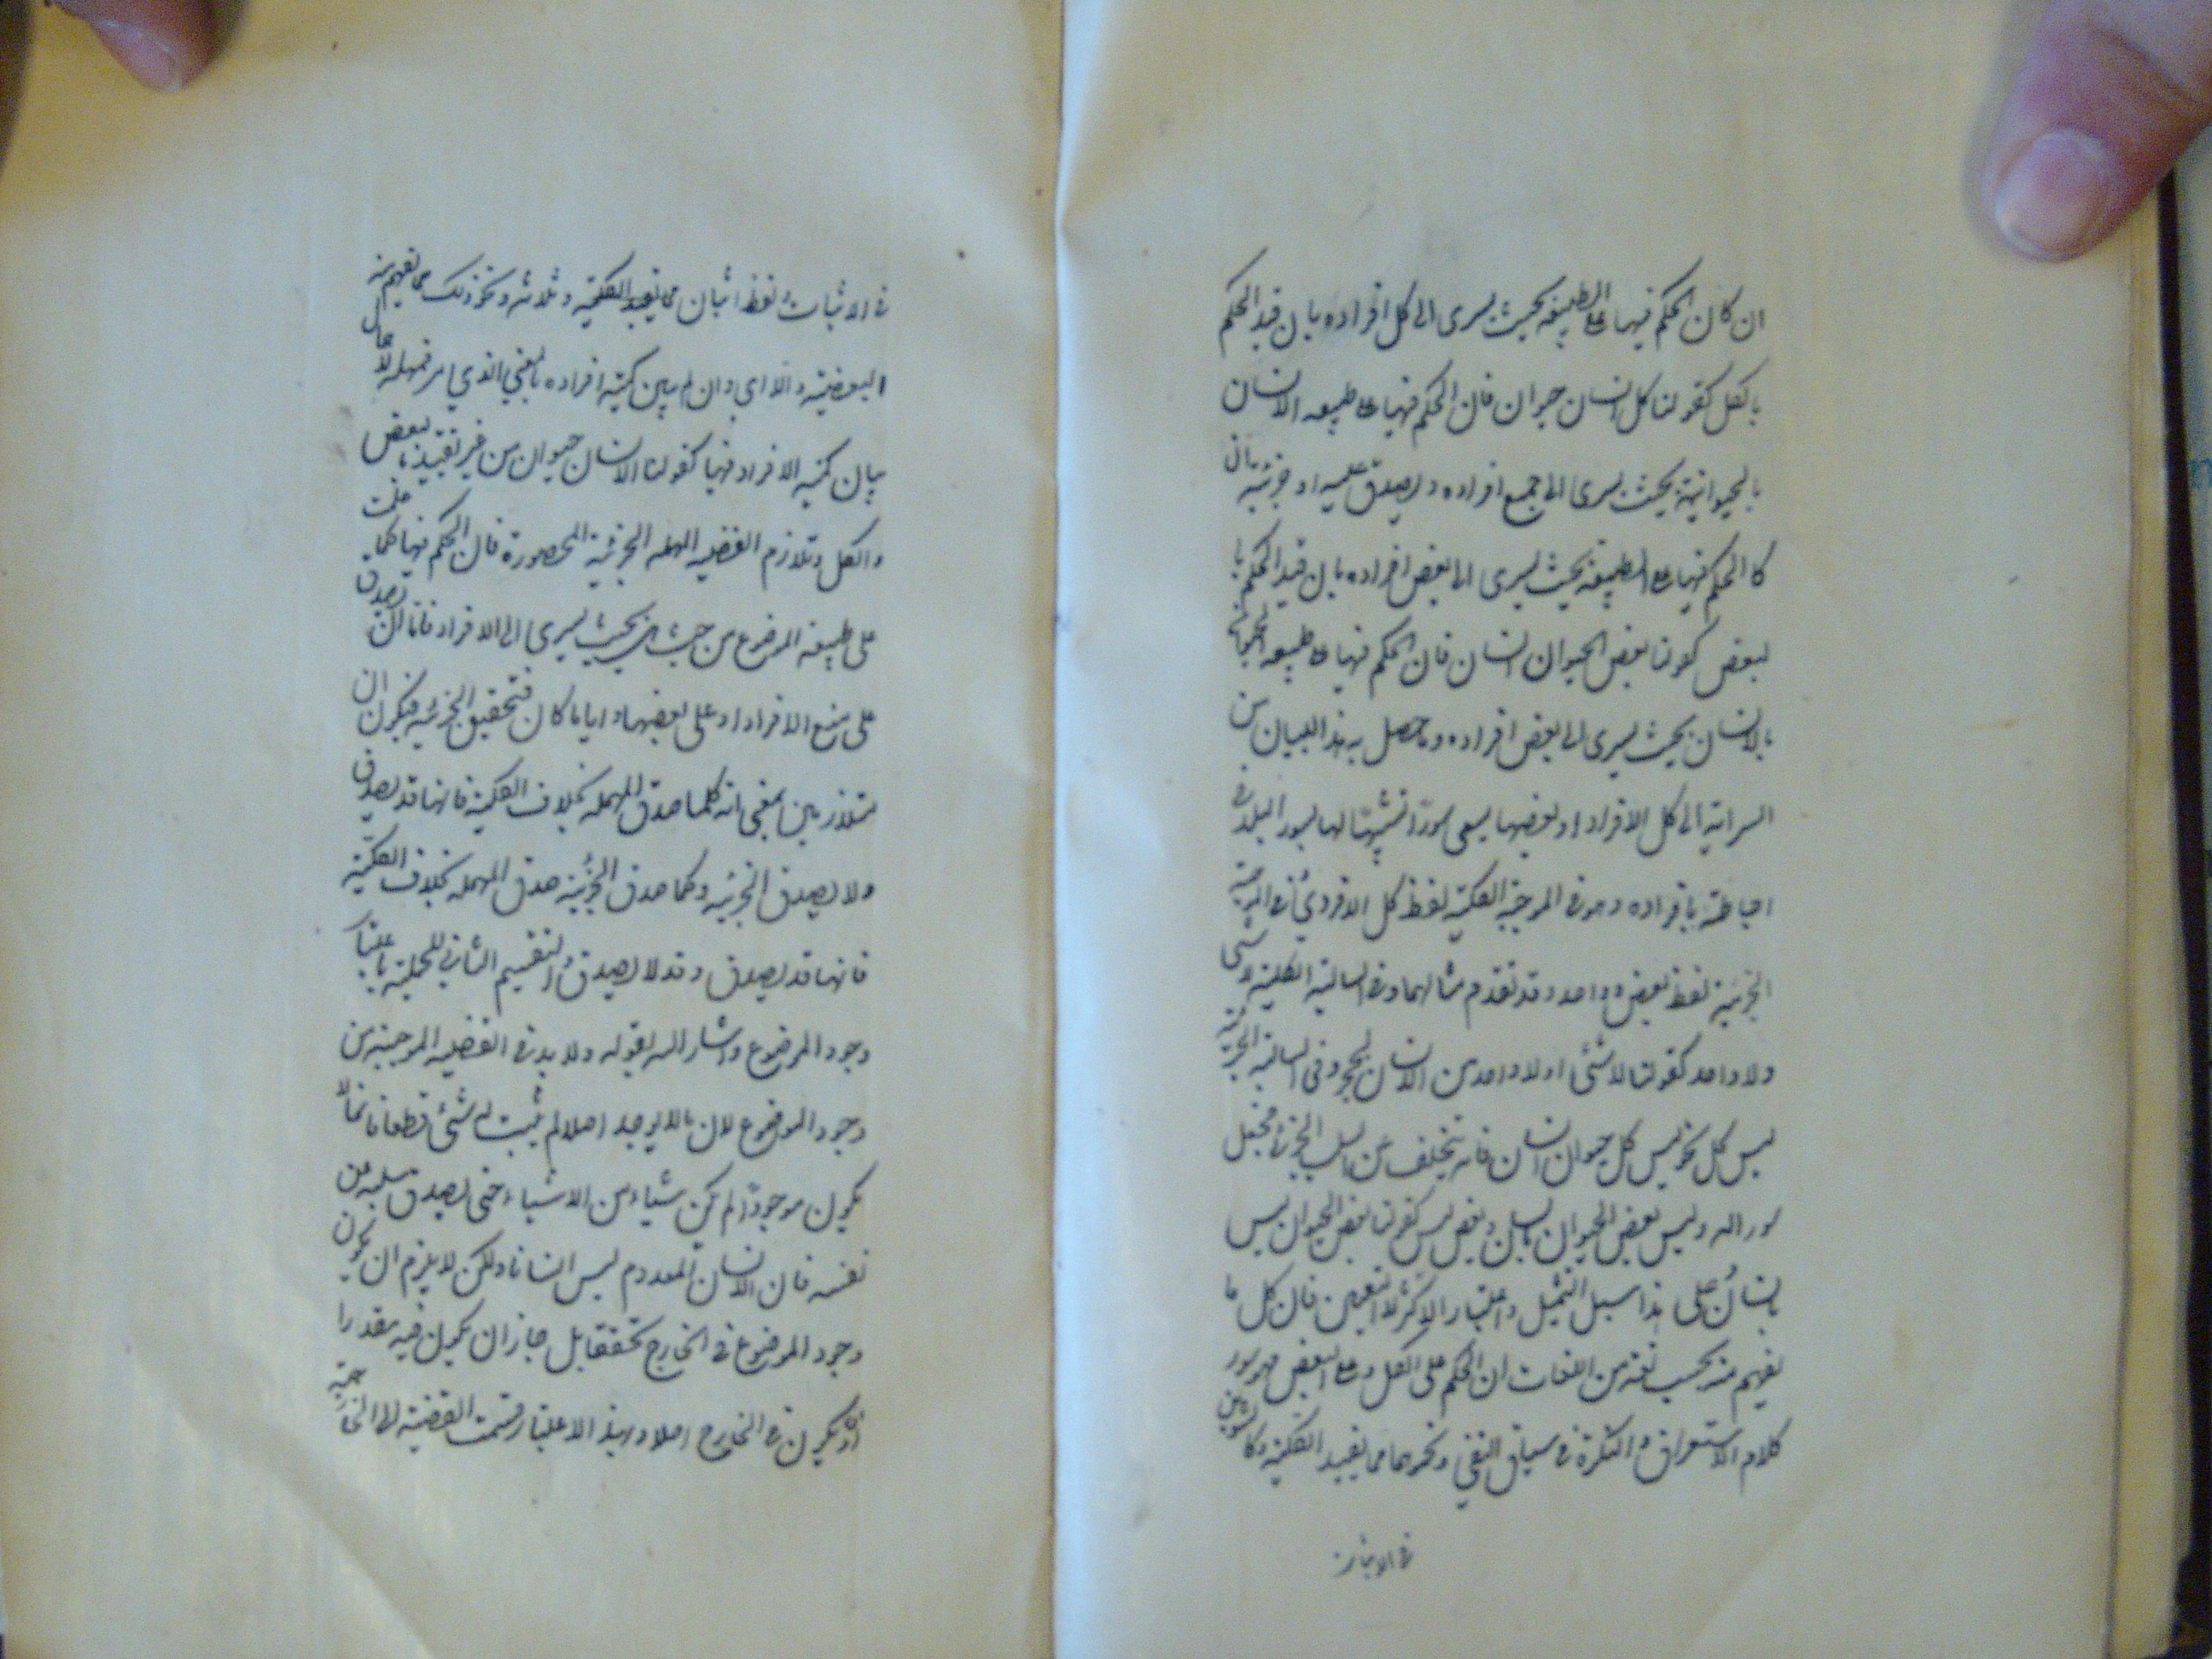 ان كان الحكم فيها على الطبيعة بحيث يسرى الى كل افراده بان قيد الحكم
بالكل كقولنا كل انسان حيوان فان الحكم فيها على طبيعة الانسان
بالحيوانية بحيث يسرى الى جميع افراده ويصدق عليه او جزئية بان
كا الحكم فيها على الطبيعة بحيث يسرى الى بعض افراده بان قيد الحكم با
لبعض كقولنا بعض الحيوان انسان فان الحكم فيها على طبيعة الحيوان
بالانسان بحيث يسرى الى بعض افراده وما حصل به هذا البيان من
السراية الى كل الافراد او بعضها يسمى سورا تشبيها لها بسور البلد فى
احاطته بافراده وهو فى الموجبة الكلية لفظ كل الافرادي فى الموجبة
الجزئية لفظ بعض وواحد وقد تقدم مثالهما وفى السالبة الكلية لا شئ
ولا واحد كقولنا لا شئ او لا واحد من الانسان بحجر وفى السالبة الجزئية
ليس كل نحو ليس كل حيوان انسان فانه يتخلف عن السلب الجزئى فجعل
سورا له وليس بعض الحيوان بانسان وبعض ليس كقولنا بعض الحيوان ليس
بانسان على هذا سبيل التمثيل واعتبار الاكثر لا التعيين فان كل ما
يفهم منه بحسب لغة من اللغات ان الحكم على الكل او على البعض فهو سور
كلام الاستغراق والنكرة فى سياق النفى ونحوهما مما يفيد الكلية وكالتنوين
فى الاثبات
فى الاثبات ولفظ اثنان مما يفيد الكلية وثلاثة ونحو ذلك مما يفهم منه
البعضية والا اي وان لم يبين كمية افراده بالمعنى الذي مر فمهملة لاهمال
بيان كمية الافراد فيها كقولنا الانسان حيوان من غير تقييد بالبعض
والكل وتلازم القضية المهملة الجزئية المحصورة فان الحكم فيها كما علمت
على طبيعة الموضوع من حيث هى بحيث يسرى الى الافراد فاما ان تصدق
على جميع الافراد او على بعضها وايا ما كان فتحقق الجزئية فيكون ان
متلازمين بمعنى انه كلما صدق المهملة بخلاف الكلية فانها قد يصدق
ولا يصدق الجزئية وكلما صدق الجزئية صدق المهملة بخلاف الكلية
فانها قد يصدق وقد لا يصدق التقسيم الثانى للحملية باعتبار
وجود الموضوع واشار اليه بقوله ولا بد فى القضية الموجبة من
وجود الموضوع لان ما لا يوجد اصلا لم يثبت له شئ قطعا فانما لا
يكون موجودا لم يكن شياء من الاشياء حتى يصدق سلبه عن
نفسه فان الانسان المعدوم ليس انسانا ولكن لا يلزم ان يكون
وجود الموضوع فى الخارج تحققا بل جاز ان يكون فيه مقدرا
او لا يكون فى الخارج اصلا وبهذا الاعتبار قسمت القضية الى الخارجية